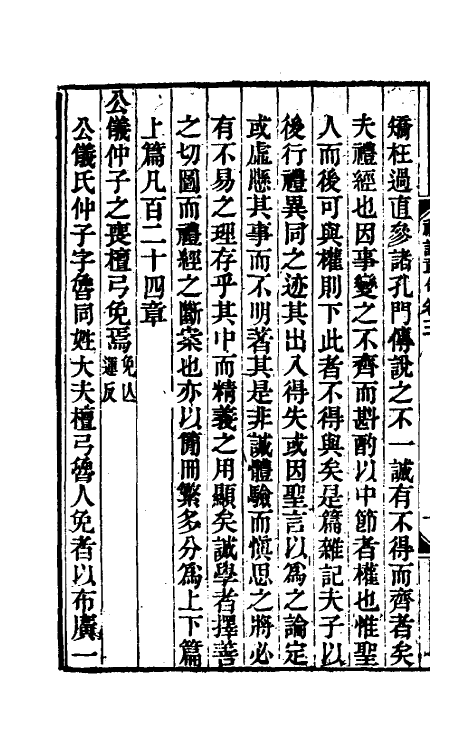 矯枉過直參諸孔門傳說之不一誠有不得而齊者矣
夫禮經也因事變之不齊而斟酌以中節者權也惟聖
人而後可與權則下此者不得與矣是篇雜記夫子以
後行禮異同之迹其出入得失或因聖言以爲之論定
或虛懸其事而不明著其是非誠體驗而愼思之將必
有不易之理存乎其中而精義之用顯矣誠學者擇善
之切圖而禮經之斷案也亦以簡冊繁多分爲上下篇
上篇凡百二十四章
公儀仲子之喪檀弓免焉免以運反
公儀氏仲子字魯同姓大夫檀弓魯人免者以布廣一